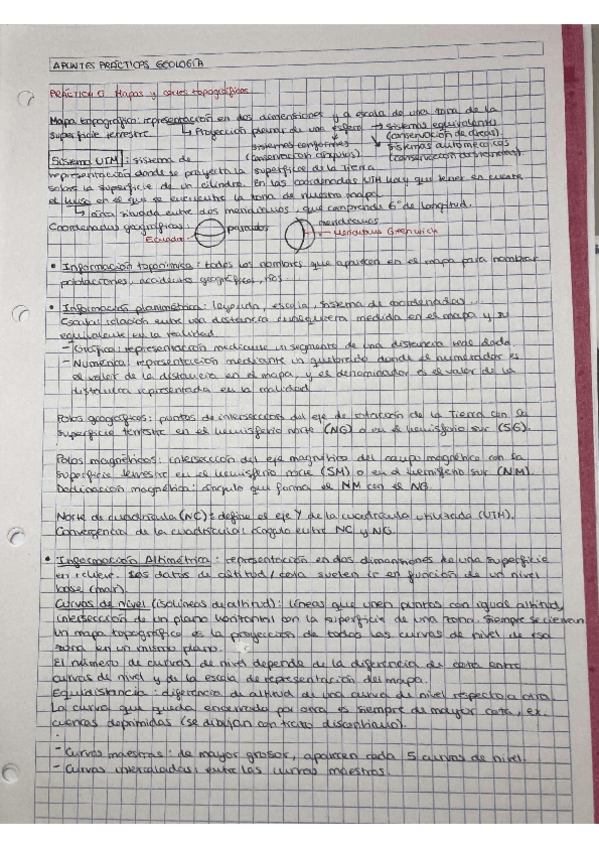 APUNTES PRÁCTICAS GEOLOGÍA
PRÁCTICA 0: Mapas y cortes topográficos
Mapa topográfico: representación en dos dimensiones y a escala de una zona de la
superficie terrestre. ↳ Proyección planar de una esfera → sistemas equivalentes
(conservación de áreas).
sistemas conformes
(conservación ángulos).
sistemas automecoicos
(conservación distancias).
Sistema UTM: sistema de
representación donde se proyecta la superficie de la Tierra
sobre la superficie de un cilindro. En las coordenadas UTM hay que tener en cuenta
el huso en el que se encuentre la zona de nuestro mapa.
↳ zona situada entre dos meridianos, que comprende 6º de longitud.
Coordenadas geográficas
paralelos
meridianos
Ecuador
Meridiano Greenwich
• Información toponímica: todos los nombres que aparecen en el mapa para nombrar
poblaciones, accidentes geográficos, ríos
• Información planimétrica: leyenda, escala, sistema de coordenadas...
Escala: relación entre una distancia cualquiera medida en el mapa y su
equivalente en la realidad
- Gráfica: representación mediante un segmento de una distancia dada.
- Numérica: representación mediante un quebrado donde el numerador es
el valor de la distancia en el mapa, y el denominador es el valor de la
distancia representada en la realidad
Polos geográficos: puntos de intersección del eje de rotación de la Tierra con la
superficie terrestre en el hemisferio norte (NG) o en el hemisferio sur (SG).
Polos magnéticos: intersección del eje magnético del campo magnético con la
superficie terrestre en el hemisferio norte (SM) o en el hemisferio sur (NM).
Declinación magnética: ángulo que forma el NM con el NG.
Norte de cuadrícula (NC): define el eje Y de la cuadrícula utilizada (UTM).
Convergencia de la cuadrícula: ángulo entre NC y NG.
• Información Altimétrica: representación en dos dimensiones de una superficie
en relieve. Los datos de altitud/cota suelen ir en función de un nivel
base (mar).
Curvas de nivel (isolíneas de altitud): líneas que unen puntos con igual altitud,
intersección de un plano horizontal con la superficie de una zona. Siempre se cierran
Un mapa topográfico es la proyección de todas las curvas de nivel de esa
zona en un mismo plano.
El número de curvas de nivel depende de la diferencia de cota entre
curvas de nivel y de la escala de representación del mapa.
Equidistancia: diferencia de altitud de una curva de nivel respecto a otra
La curva que queda encerrada por otra es siempre de mayor cota, ex.
cuencas deprimidas (se dibujan con trazo discontinuo).
- Curvas maestras: de mayor grosor, aparecen cada 5 curvas de nivel.
- Curvas intercaladas: entre las curvas maestras.